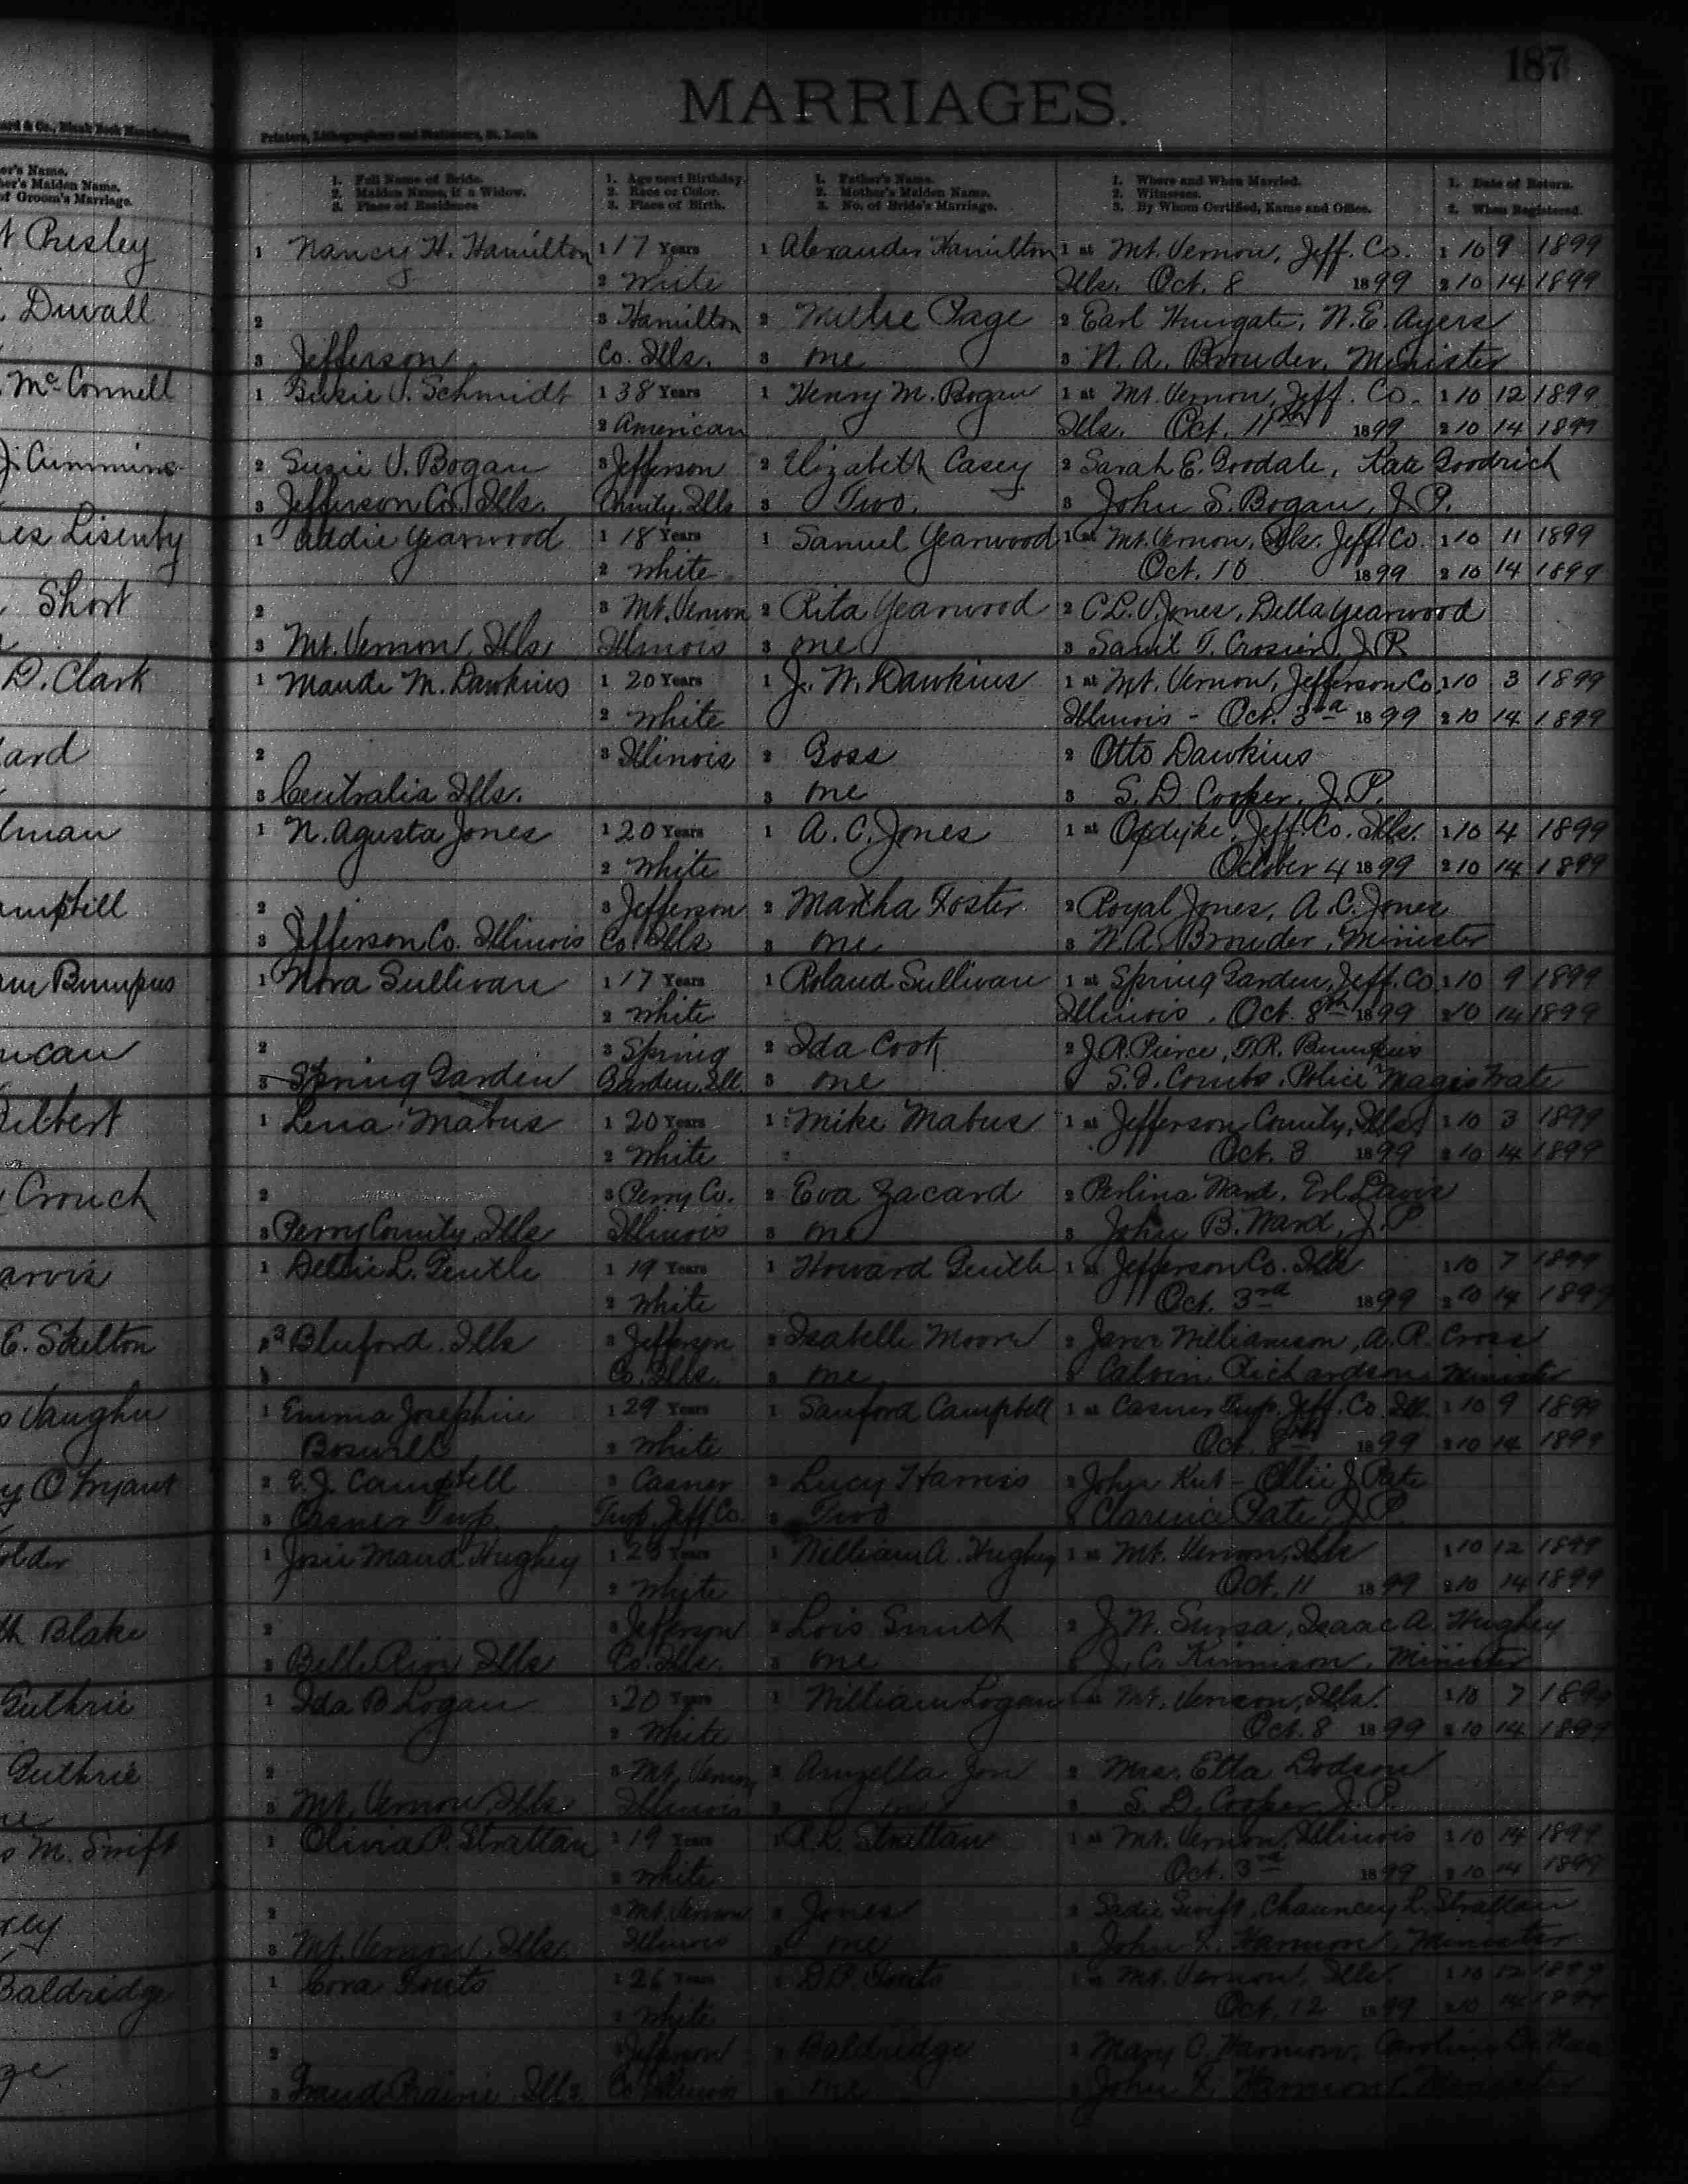 187
MARRIAGES.
Printers, Lithographers and Stationers, St. Louis
1. Full Name of Bride.
2. Maiden Name, if a Widow.
3. Place of Residence
1. Age next Birthday.
2. Race or Color.
3. Place of Birth.
1. Father's Name.
2. Mother's Maiden Name.
3. No. of Bride's Marriage.
1. Where and When Married.
2. Witnesses.
3. By Whom Certified, Name and Office.
1. Date of Return.
2. When Registered.
er's Name.
er's Maiden Name.
of Groom's Marriage.
t Presley
Duvall
McConnell
J. Cummins
es Lisenby
Short
D. Clark
ard
lman
ampbell
m Bumpus
ncan
ilbert
Crouch
arvis
E. Skelton
s Vaughn
y O Fryant
older
th Blake
Guthrie
Guthrie
s M. Swift
xey
Baldridge
ge
1 Nancy H. Hamilton 1 17 Years 1 Alexander Hamilton 1 at Mt. Vernon, Jeff. Co. 1 10 9 1899
2 White Ills. Oct. 8 1899 2 10 14 1899
2 3 Hamilton 2 Millie Page 2 Earl Hungate, N.E. Ayers
3 Jefferson Co. Ills. 3 one 3 W. A. Browder, Minister
1 Susie V. Schmidt 1 38 Years 1 Henry M. Bogan 1 at Mt. Vernon, Jeff. Co. 1 10 12 1899
2 American Ills. Oct. 11th 1899 2 10 14 1899
2 Suzie V. Bogan 3 Jefferson 2 Elizabeth Casey 2 Sarah E. Goodale, Kate Goodrich
3 Jefferson Co. Ills. County, Ills 3 Two. 3 John S. Bogan, J.P.
1 Addie Yearwood 1 18 Years 1 Samuel Yearwood 1 at Mt. Vernon, Ills. Jeff. Co. 1 10 11 1899
2 White Oct. 10 1899 2 10 14 1899
2 3 Mt. Vernon 2 Rita Yearwood 2 C.L.V. Jones, Della Yearwood
3 Mt. Vernon, Ills Illinois 3 one 3 Saml T. Crosier, J.P.
1 Maude M. Dawkins 1 20 Years 1 J. W. Dawkins 1 at Mt. Vernon, Jefferson Co. 1 10 3 1899
2 White Illinois - Oct. 3rd 1899 2 10 14 1899
2 3 Illinois 2 Goss 2 Otto Dawkins
3 Centralia Ills. 3 one 3 S. D. Cooper, J.P.
1 N. Agusta Jones 1 20 Years 1 A. C. Jones 1 at Opdyke, Jeff. Co. Ills. 1 10 4 1899
2 White October 4 1899 2 10 14 1899
2 3 Jefferson 2 Martha Foster 2 Royal Jones, A. C. Jones
3 Jefferson Co. Illinois Co. Ills 3 one 3 W. A. Browder, Minister
1 Nora Sullivan 1 17 Years 1 Roland Sullivan 1 at Spring Garden, Jeff. Co. 1 10 9 1899
2 White Illinois, Oct. 8th 1899 2 10 14 1899
2 3 Spring 2 Ida Cook 2 J.R. Pierce, T.R. Bumpus
3 Spring Garden Garden, Ill. 3 one 3 Combs, Police Magistrate
1 Lena Mabus 1 20 Years 1 Mike Mabus 1 at Jefferson County, Ills. 1 10 3 1899
2 White Oct. 3 1899 2 10 14 1899
2 3 Perry Co. 2 Eva Zacard 2 Perlina Ward, Erl Davis
3 Perry County, Ills Illinois 3 one 3 John B. Ward, J.P.
1 Dellie L. Gentle 1 19 Years 1 Howard Gentle 1 at Jefferson Co. Ills 1 10 7 1899
2 White Oct. 3rd 1899 2 10 14 1899
3 Bluford, Ills 3 Jefferson 2 Isabelle Moore 2 Williamson, A. R. Cross
3 Co. Ills. 3 one 3 Calvin Richardson Minister
1 Emma Josephine 1 29 Years 1 Sanford Campbell 1 at Casner Twp. Jeff. Co. Ill. 1 10 9 1899
Boswell 2 White Oct. 8th 1899 2 10 14 1899
2 E. J. Campbell 3 Casner 2 Lucy Harris 2 John - Ollie J Pate
3 Casner Twp. Twp. Jeff Co. 3 Two 3 Clarence Pate, J.P.
1 Josie Maud Hughey 1 23 Years 1 William A. Hughey 1 at Mt. Vernon, Ills 1 10 12 1899
2 White Oct. 11 1899 2 10 14 1899
2 3 Jefferson 2 Lois Smith 2 J. W. Sursa, Isaac A. Hughey
3 Belle Rive, Ills Co. Ills. 3 one 3 J. C. Kinnison, Minister
1 Ida B Logan 1 20 Years 1 William Logan 1 at Mt. Vernon, Ills. 1 10 7 1899
2 White Oct. 8 1899 2 10 14 1899
2 3 Mt. Vernon 2 2 Mrs. Etta Dodson
3 Mt. Vernon, Ills. Illinois 3 S. D. Cooper, J.P.
1 Olivia P. Strattan 1 19 Years 1 Strattan 1 at Mt. Vernon, Illinois 1 10 14 1899
2 White Oct. 3rd 1899 2 10 14 1899
2 3 Mt. Vernon 2 Jones 2 Sadie Swift, Chauncey L. Strattan
3 Mt. Vernon, Ills. Illinois 3 one 3 John Harmon, Minister
1 Cora Fouts 1 26 Years 1 D.P. Fouts 1 at Mt. Vernon, Ills. 1 10 12 1899
2 White Oct. 12 1899 2 10 14 1899
2 3 Jefferson 2 Baldridge 2 Mary O. Harmon, Caroline
3 Grand Prairie, Ills. Co. Illinois 3 one 3 John Harmon, Minister